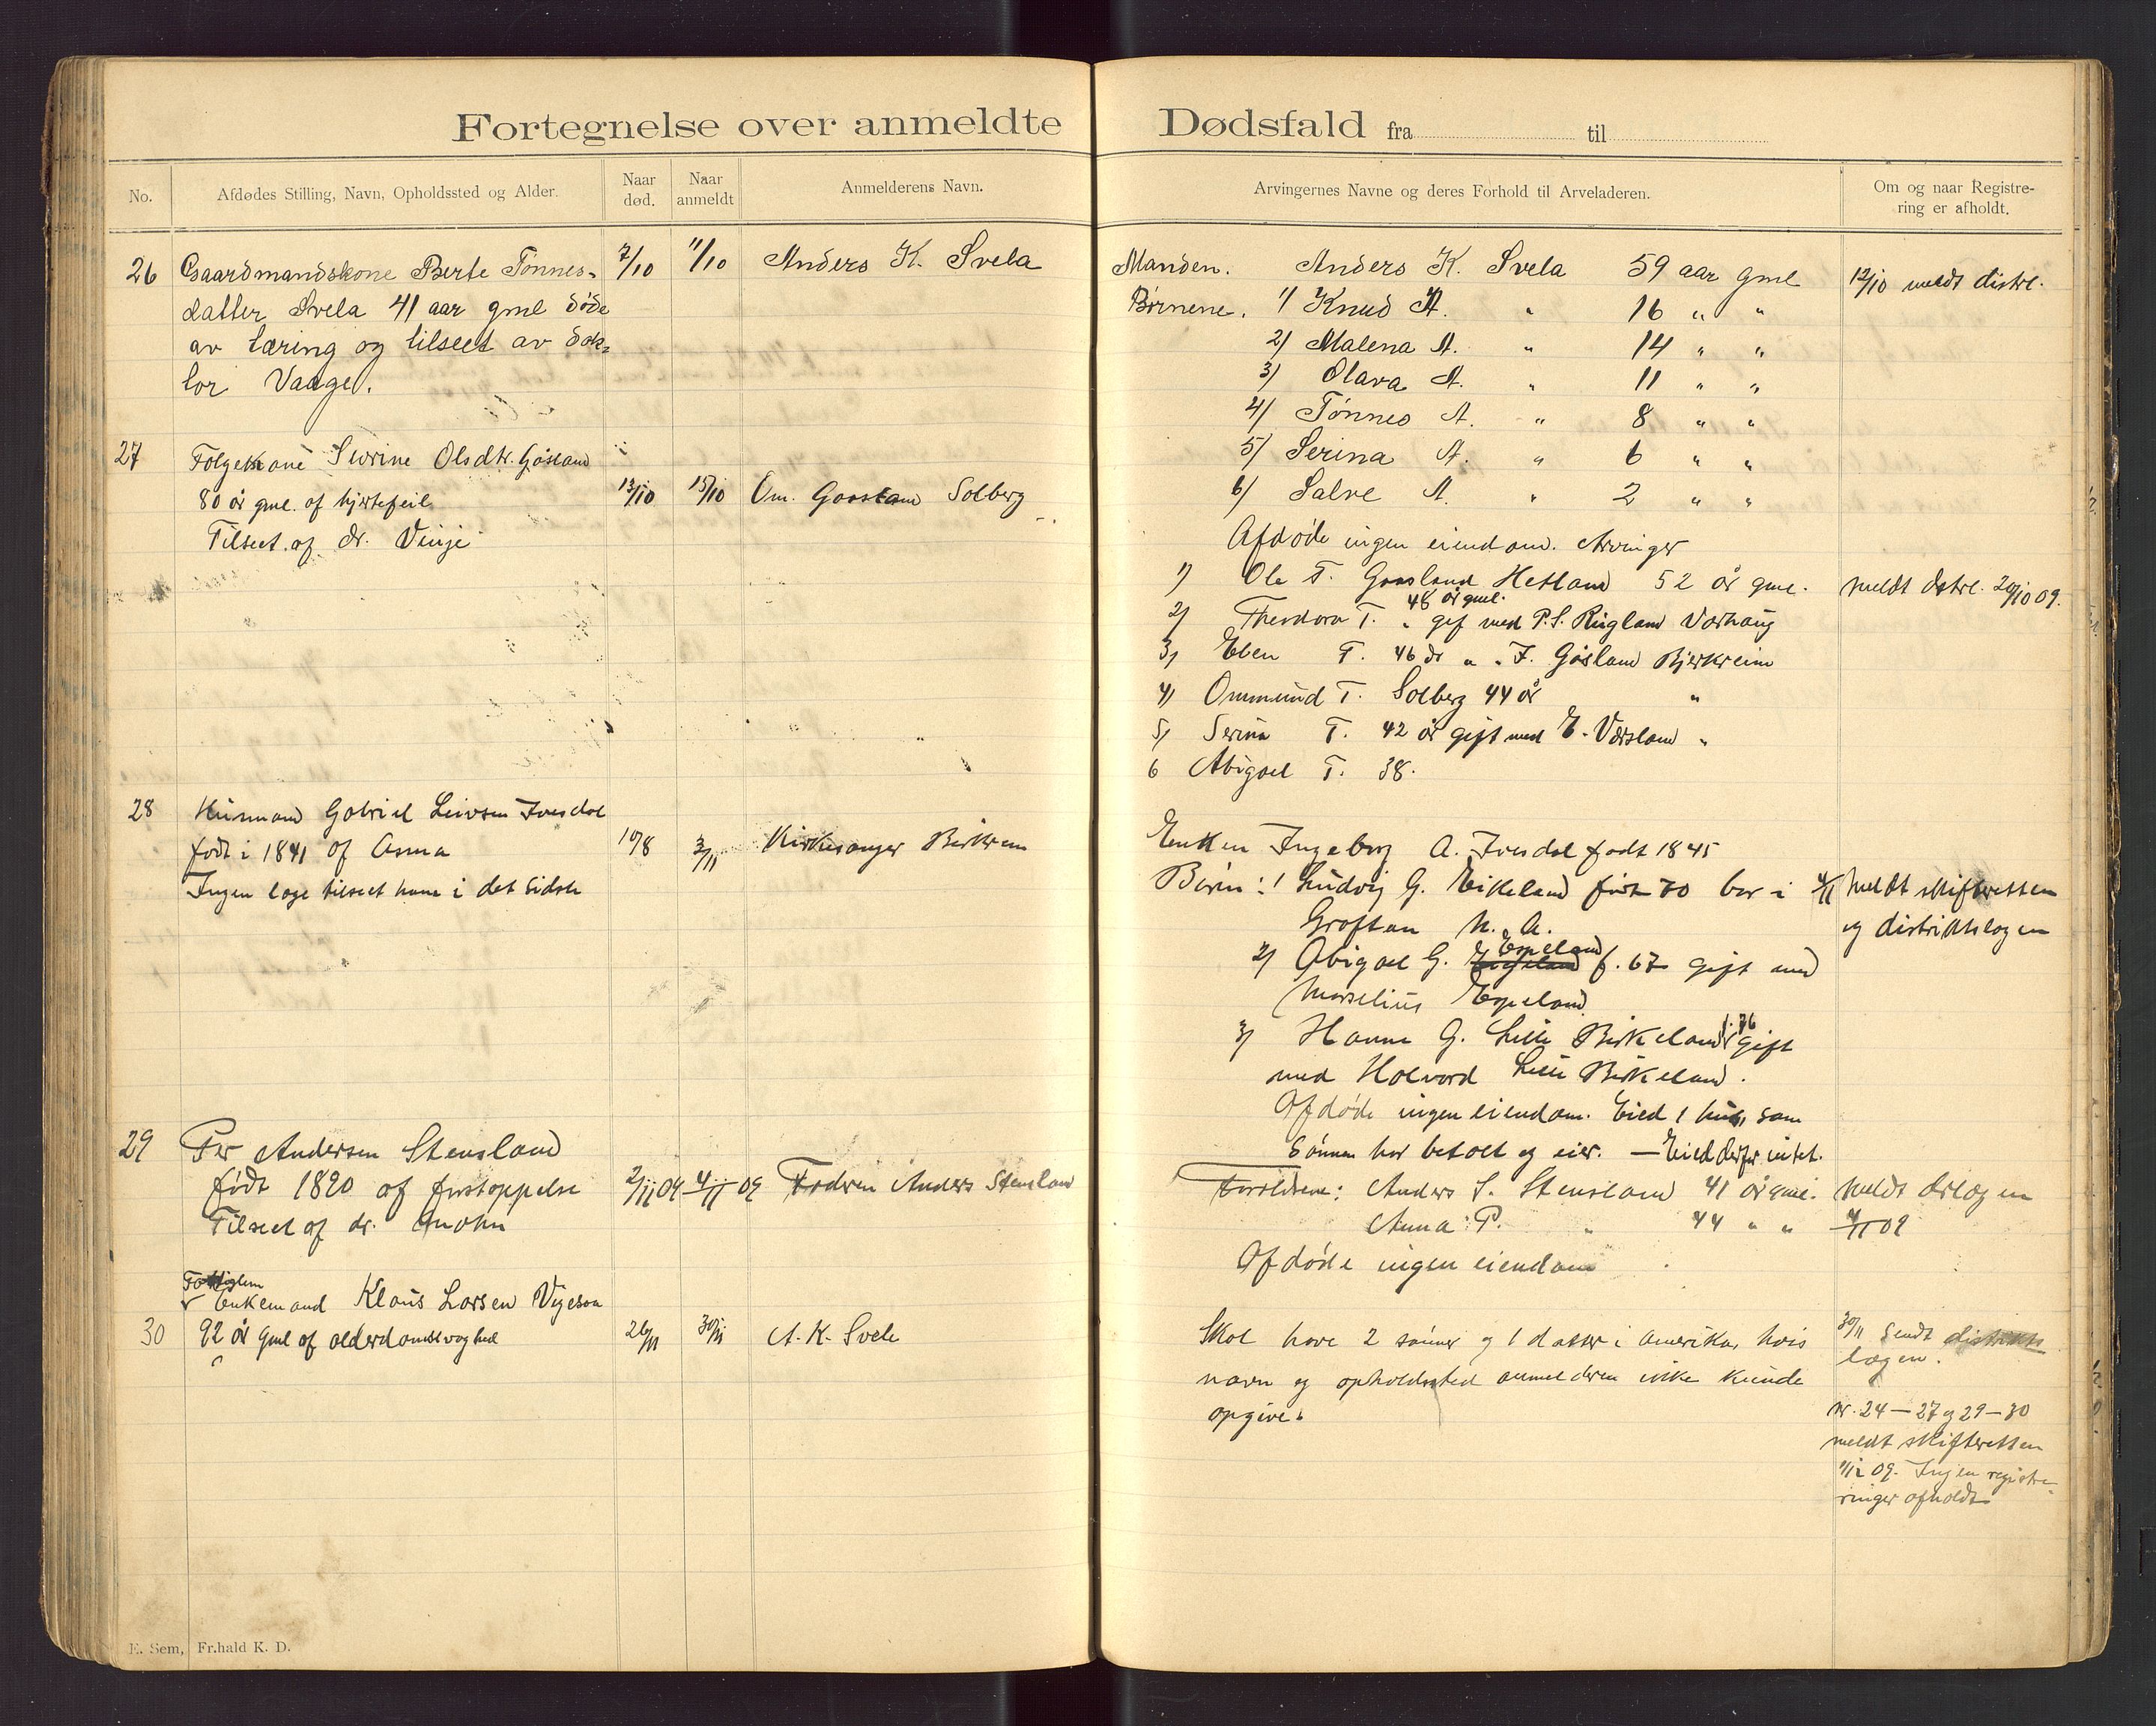 Fortegnelse over anmeldte Dødsfald fra til
No.
Afdødes Stilling, Navn, Opholdssted og Alder.
Naar død.
Naar anmeldt
Anmelderens Navn.
Arvingernes Navne og deres Forhold til Arveladeren.
Om og naar Registrering er afholdt.
26 Gaardmandskone Berte Tønnes- 7/10 11/10 Anders K. Svela
datter Svela 41 aar gml døde
av tæring og tilseet av dok-
tor Vaage.
Manden. Anders K. Svela 59 aar gml 12/10 meldt distrl.
Børnene. 1/ Knud A. " 16 " "
2/ Malena A. " 14 " "
3/ Olava A. " 11 " "
4/ Tønnes A. " 8 " "
5/ Serina A. " 6 " "
6/ Salve A. " 2 " "
27 Følgekone Sivrine Olsdtr. Gåsland
80 år gml. af hjertefeil 13/10 15/10 Om. Gaasland Solberg
Tilseet af dr. Vinje
Afdøde ingen eiendom. Arvinger
1) Ole T. Gaasland Hetland 52 år gml. meldt dstrl. 20/10 09.
48 år gml.
2) Theodora T. " gif med P.S. Rugland Varhaug
3) Eben T. 46 år " " F. Gåsland Bjerkreim
4) Ommund T. Solberg 44 år "
5) Serina T. 42 år gift med E. Versland "
6 Abigael T. 38.
28 Husmand Gabriel Leivsen Ivesdal
født i 1841 af Asma 10/8 3/11 Kirkesanger Birkrem
Ingen læge tilseet ham i det sidste
Enken Ingeborg A. Ivesdal født 1845
Børn: 1 Ludvig G. Eikeland født 70 bor i 4/11 meldt skifteretten
Groftan N. A. og distriktslægen
Espeland
2/ Abigael G. f. 67 gift med
Marselius Espeland
f. 76
3/ Hanne G. Lille Birkeland gift
med Halvard Lille Birkeland.
Afdøde ingen eiendom. Eied 1 hus, som
Sønnen har betalt og eier. — Eied derfor intet.
29 Per Andersen Stensland
født 1890 af forstoppelse 2/11 09 4/11 09 Fadren Anders Stensland
Tilseet af dr.
Forældrene: Anders S. Stensland 41 år gml. Meldt drlægen
Anna P. " 44 " " 4/11 09
Afdøde ingen eiendom
Enkemand Klaus Larsen
30 92 år gml af alderdomssvaghed 26/11 30/11 A. K. Svela
Skal have 2 sønner og 1 datter i Amerika, hvis
navn og opholdssted anmelderen ikke kunde
opgive.
30/11 sendt distrikts
lægen.
nr. 24 — 27 og 29 — 30
meldt skifteretten
1/12 09. Ingen registre-
ringer afholdt
E. Sem, Fr.hald K. D.